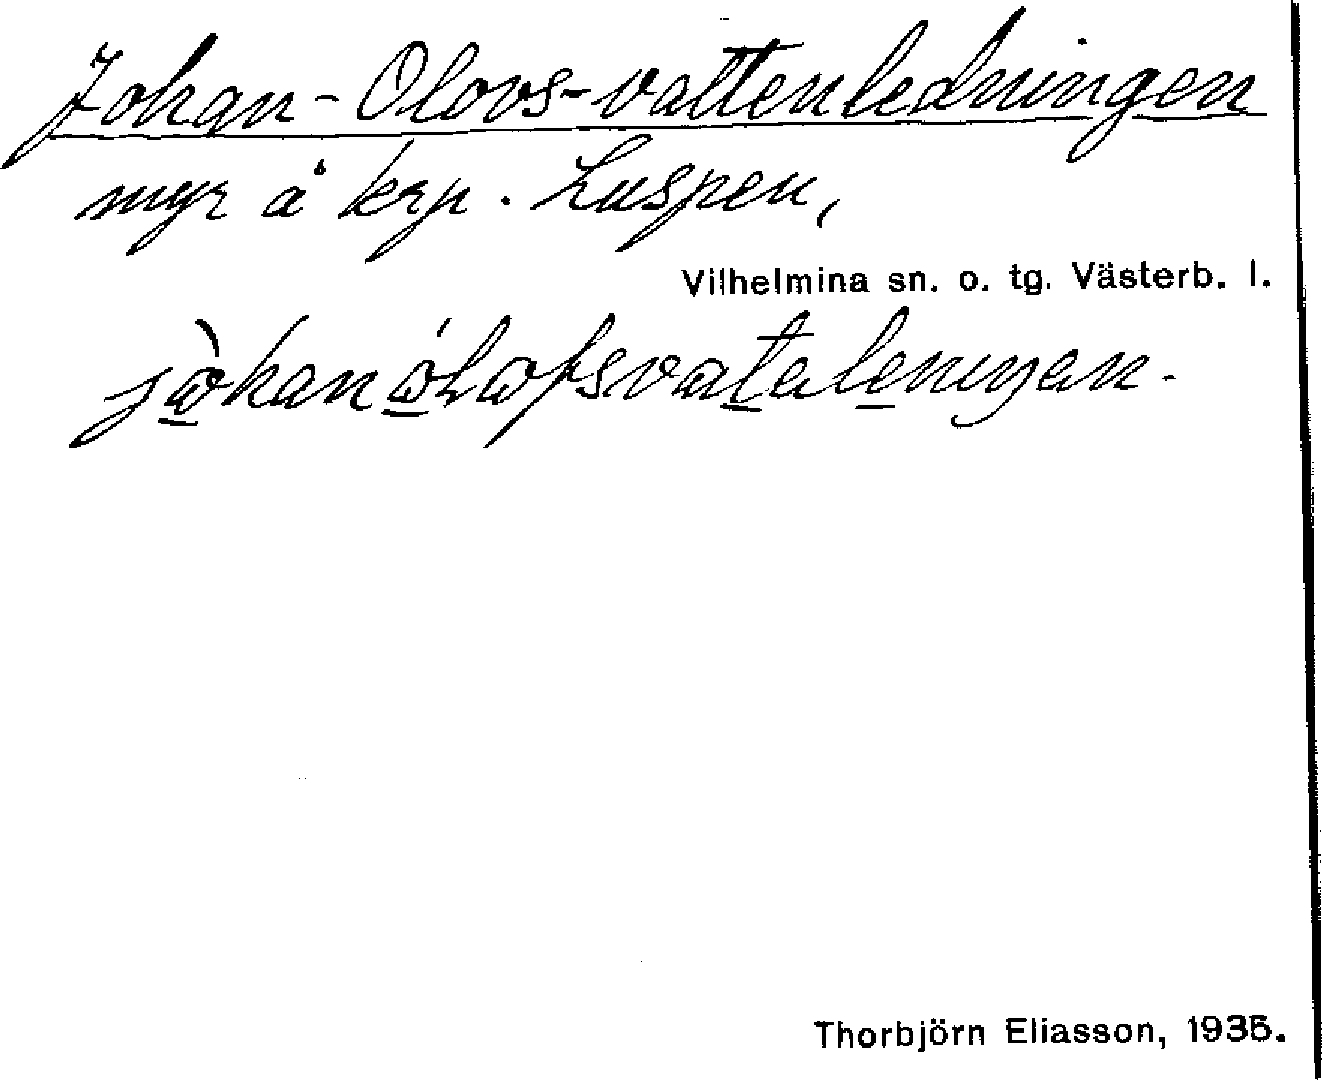 Johan-Olovs-vattenledningen
myr å krp. Luspen,
Vilhelmina sn. o. tg. Västerb. l.
Thorbjörn Eliasson, 1935.